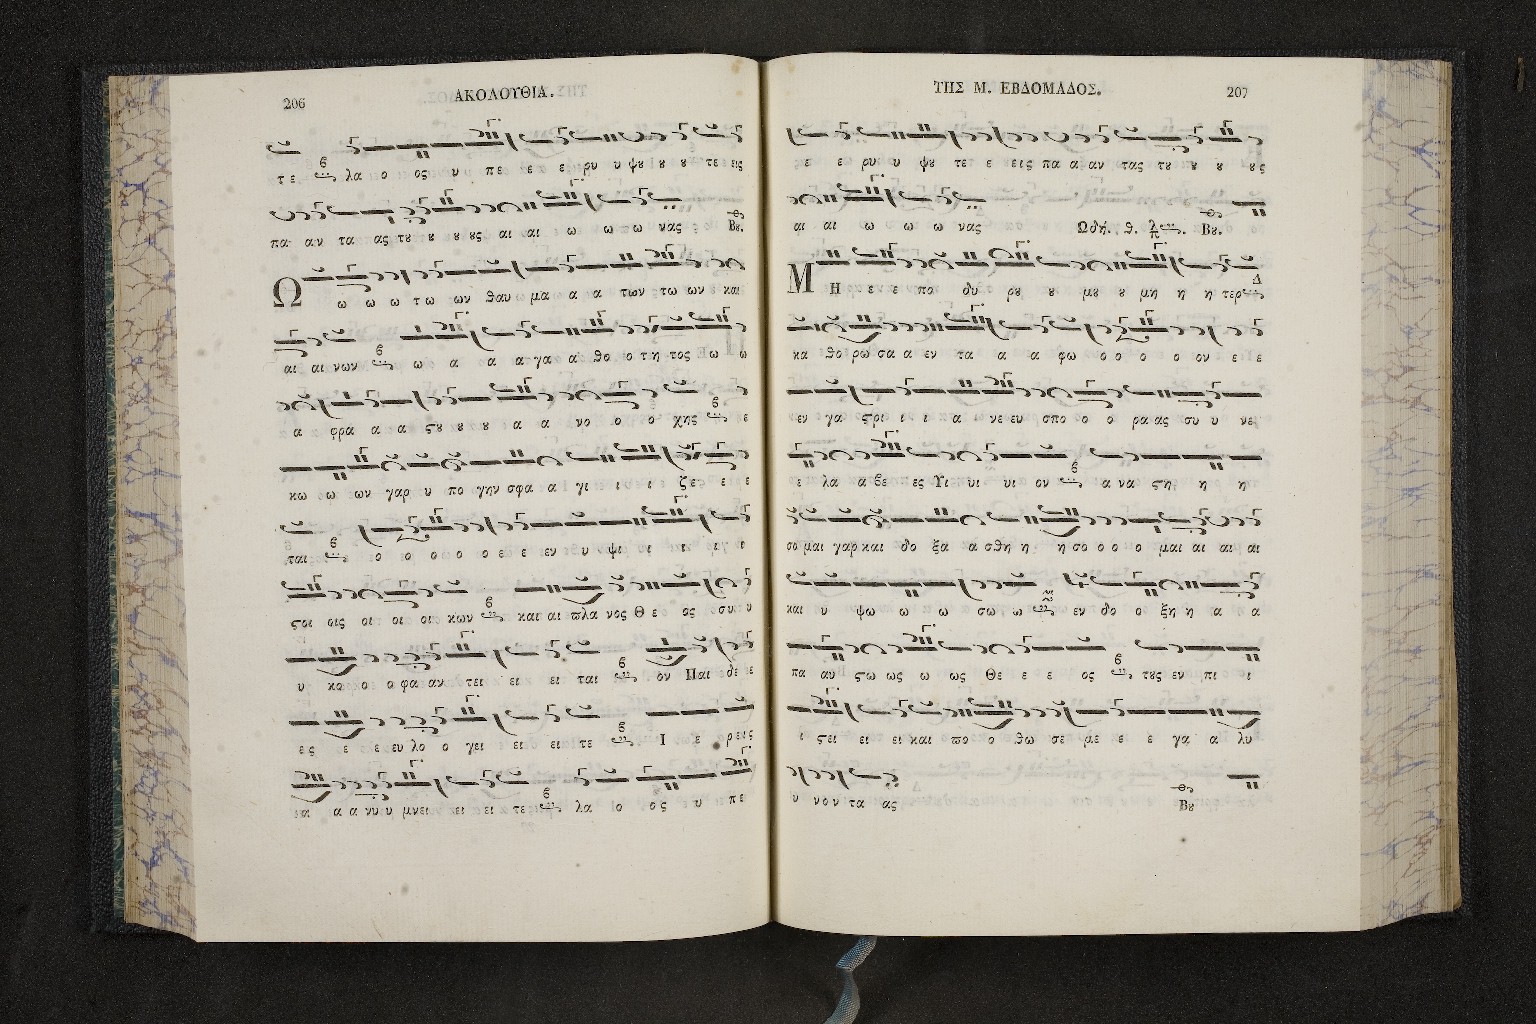 206
ΑΚΟΛΟΥΘΙΑ.
τε λα ο ος υ πε ε ε ρυ υ ψȣ ȣ ȣ τε εις
πα αν τα ας τȣ ȣ ȣ ȣς αι αι ω ω ω νας : Βȣ.
Ω ω ω ω τω ων θαυ μα α α των τω ων ε και
αι αι νων ω α α α γα α θο ο τη τος Εω ω
α φρα α α ςȣ ȣ ȣ α α νο ο ο χης ε
κω ω ων γαρ υ πο γην σφα α γι ι ι ζε ε ε
ται ο ο ο ο ο ο ε ε εν υ ψι ι ι ι ι
ςοι οις οι οι οι κων και αι πλα νος Θε ος συ υ
υ κο ο ο φα αν τει ει ει ται ον Παι δε ε
ες ε ε ευ λο ο γει ει ει τε Ι ε ρεις
α α νυ υ μνει ει ει ει τε λα ο ος υ πε
ΤΗΣ Μ. ΕΒΔΟΜΑΔΟΣ.
207
ε ε ρυ υ ψȣ τε ε εις πα α αν τας τȣ ȣ ȣ ȣς
αι αι ω ω ω νας Ωδή. θ. Βȣ.
Μ Η ε ε πο δυ ρȣ ȣ μȣ ȣ μη η η τερ Δ
κα θο ρω σα α εν τα α α φω ο ο ο ο ον ε ε
εν γα ςρι ι ι α νε ευ σπο ο ο ρα ας συ υ νε
ε λα α βε ες Υι υι υι ον α να ςη η η
σο μαι γαρ και δο ξα α σθη η η σο ο ο ο μαι αι αι αι
και υ ψω ω ω σω ω εν δο ο ξη η α α
πα αυ ςω ως ω ως Θε ε ε ος τȣς εν πι ι
ι ςει ει ει και πο ο θω σε με ε ε γα α λυ
υ νον τα ας Βȣ